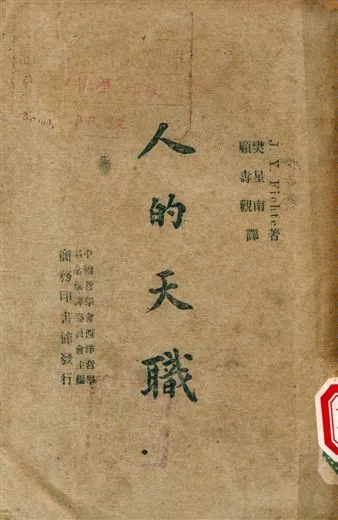 J. Y. Fichte 著
樊星南
顧壽觀 譯
人的天職
中國哲學會西洋哲學
名著編譯委員會主編
商務印書館發行